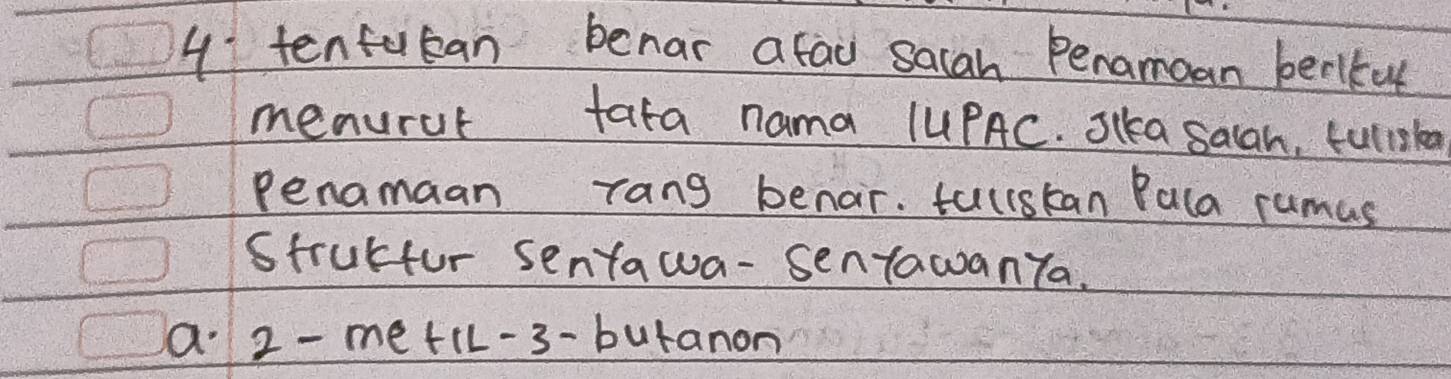 4. tentukan benar atau salah Penamaan berikut
menurut tata nama IUPAC. Jika salah, tuliskan
Penamaan yang benar. tuliskan Pula rumus
Struktur senyawa-senyawanya.
a. 2-metil-3-butanon